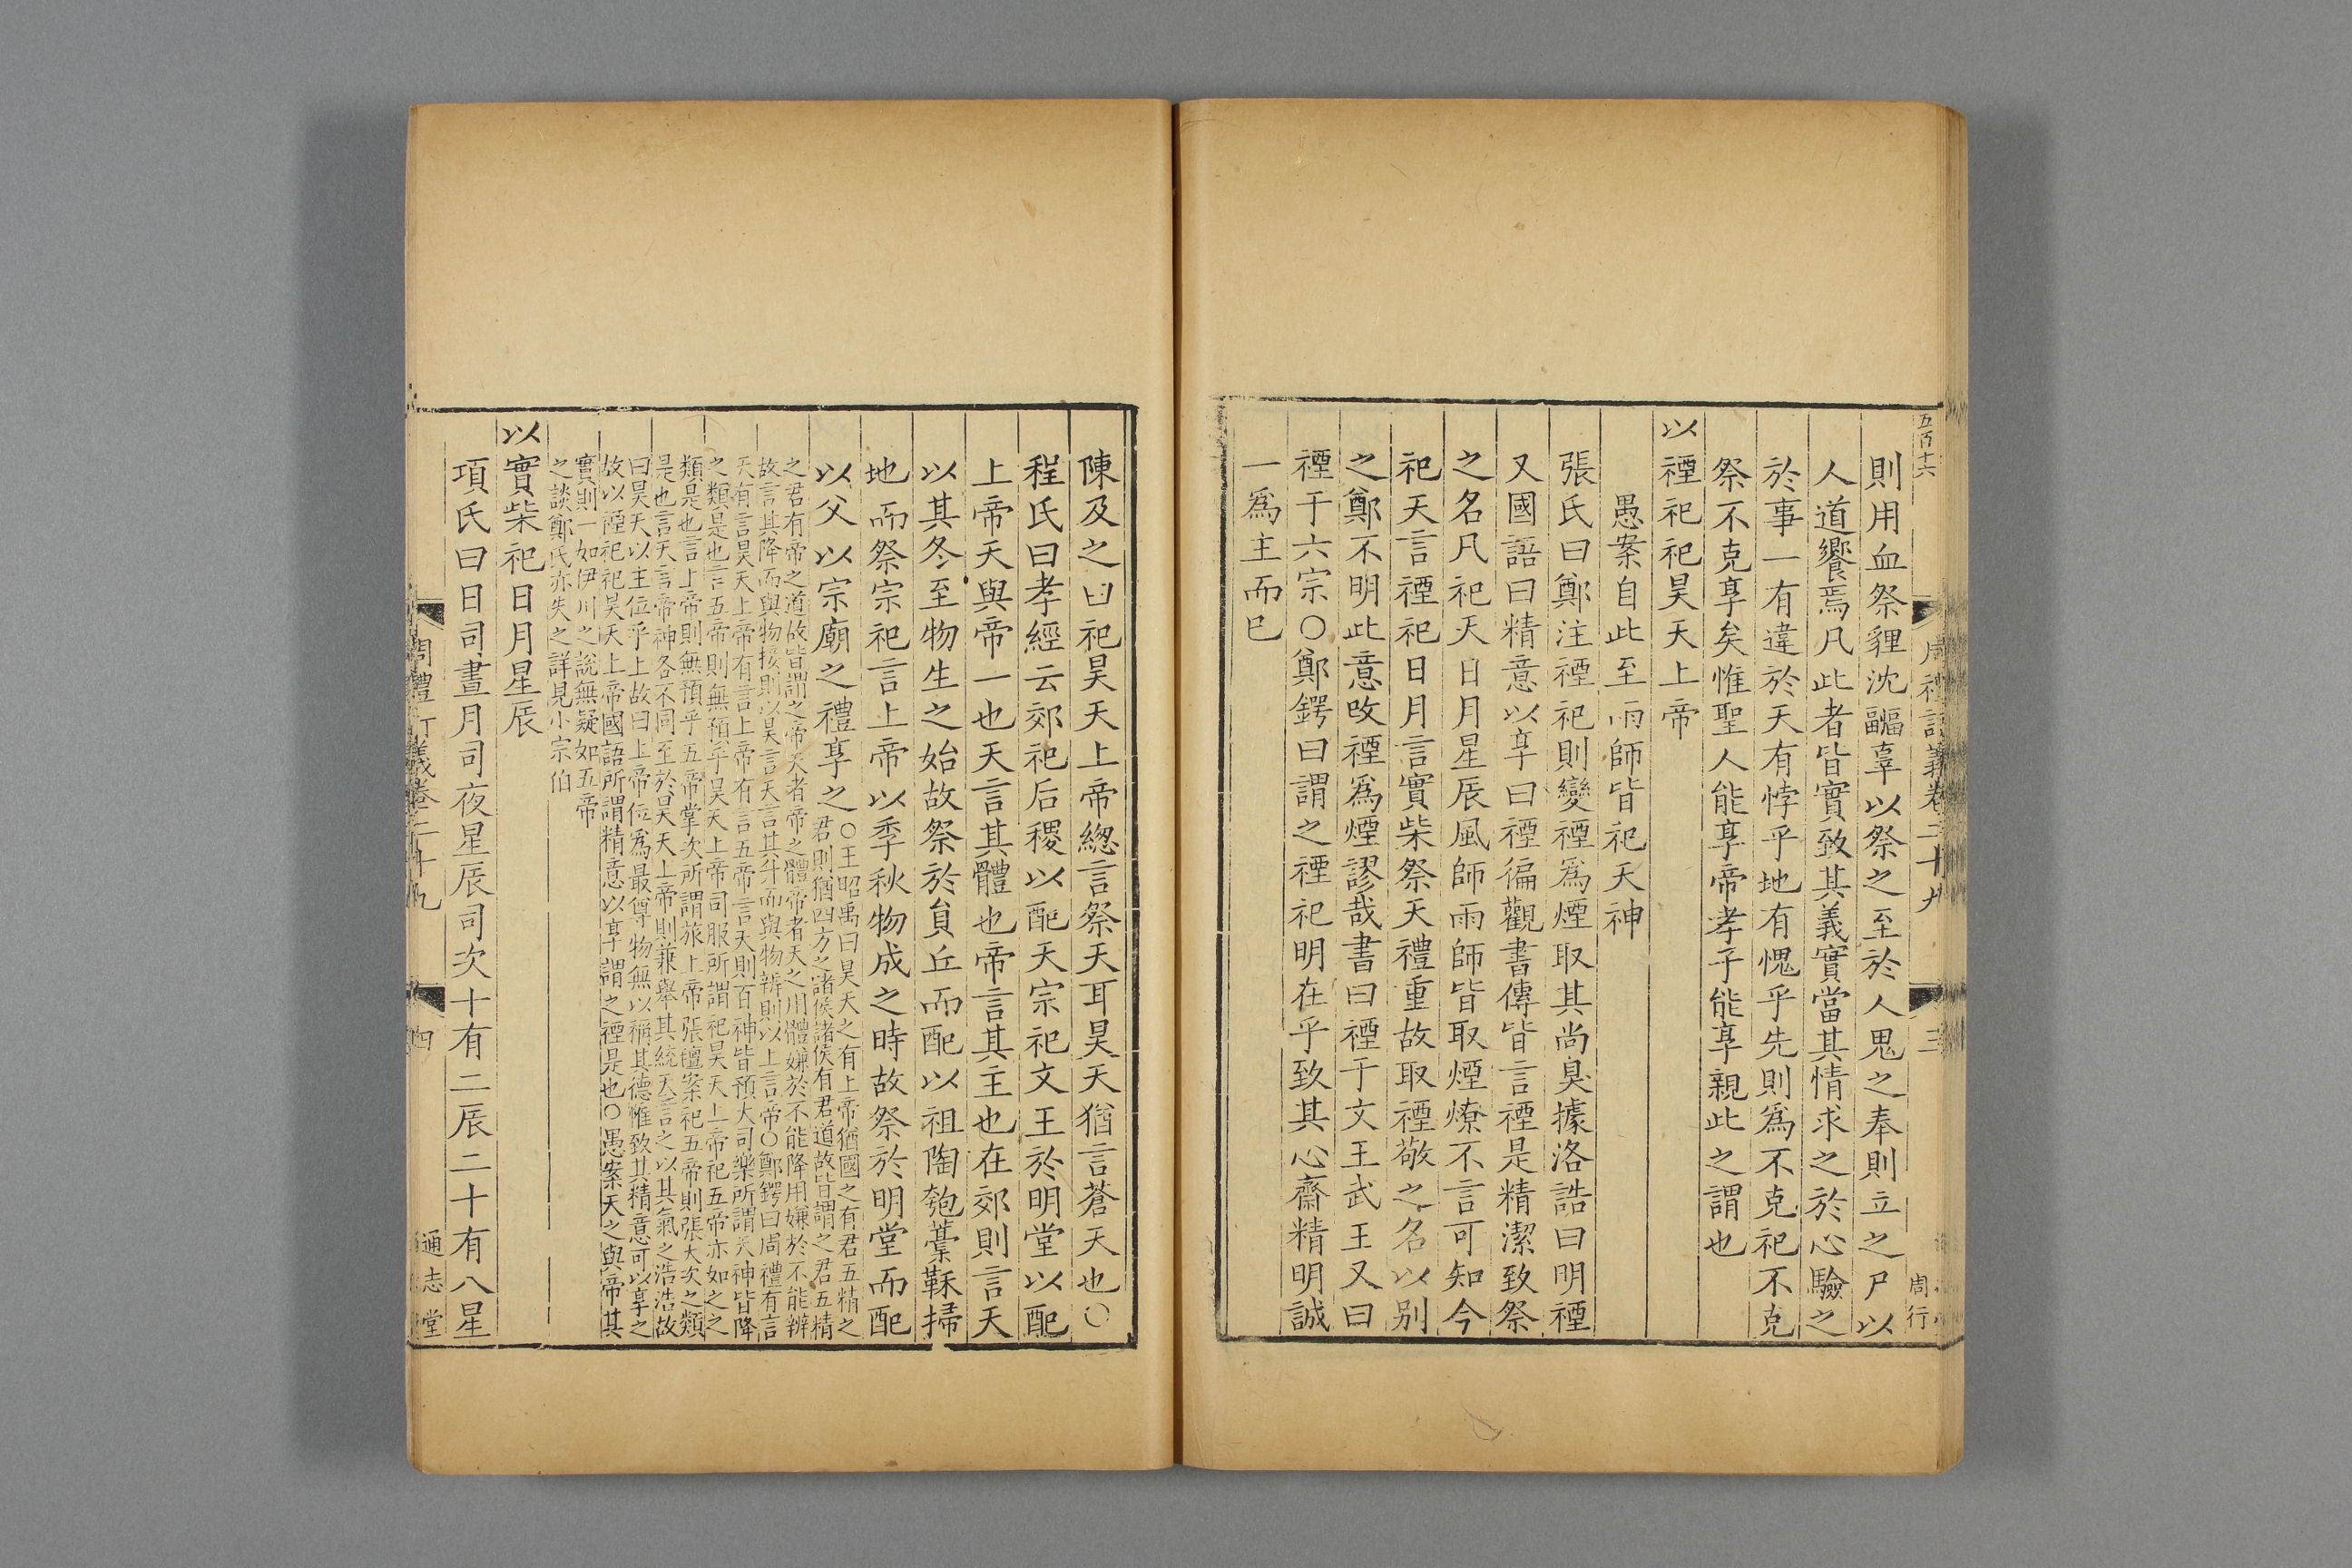 五百十六
周禮訂義卷二十九
三
周行
則用血祭貍沈疈辜以祭之至於人鬼之奉則立之尸以
人道饗焉凡此者皆實致其義實當其情求之於心驗之
於事一有違於天有悖乎地有愧乎先則爲不克祀不克
祭不克享矣惟聖人能享帝孝子能享親此之謂也
以禋祀祀昊天上帝
愚案自此至雨師皆祀天神
張氏曰鄭注禋祀則變禋爲煙取其尚臭據洛誥曰明禋
又國語曰精意以享曰禋徧觀書傳皆言禋是精潔致祭
之名凡祀天日月星辰風師雨師皆取煙燎不言可知今
祀天言禋祀日月言實柴祭天禮重故取禋敬之名以别
之鄭不明此意改禋爲煙謬哉書曰禋于文王武王又曰
禋于六宗○鄭鍔曰謂之禋祀明在乎致其心齋精明誠
一爲主而巳
陳及之曰祀昊天上帝總言祭天耳昊天猶言蒼天也○
程氏曰孝經云郊祀后稷以配天宗祀文王於明堂以配
上帝天與帝一也天言其體也帝言其主也在郊則言天
以其冬至物生之始故祭於員丘而配以祖陶匏藁鞂掃
地而祭宗祀言上帝以季秋物成之時故祭於明堂而配
以父以宗廟之禮享之
○王昭禹曰昊天之有上帝猶國之有君五精之
君則猶四方之諸侯諸侯有君道故皆謂之君五精
之君有帝之道故皆謂之帝天者帝之體帝者天之用體嫌於不能降用嫌於不能辨
故言其降而與物接則以昊言天言其升而與物辨則以上言帝○鄭鍔曰周禮有言
天有言昊天上帝有言上帝有言五帝言天則百神皆預大司樂所謂天神皆降
之類是也言五帝則無預乎昊天上帝司服所謂祀昊天上帝祀五帝亦如之之
類是也言上帝則無預乎五帝掌次所謂旅上帝張氊案祀五帝則張大次之類
是也言天言帝神各不同至於昊天上帝則兼舉其統天言之以其氣之浩浩故
曰昊天以主位乎上故曰上帝位爲最尊物無以稱其德惟致其精意可以享之
故以禋祀祀昊天上帝國語所謂精意以享謂之禋是也○愚案天之與帝其
實則一如伊川之說無疑如五帝
之談鄭氏亦失之詳見小宗伯
以實柴祀日月星辰
項氏曰日司晝月司夜星辰司次十有二辰二十有八星
周禮訂義卷二十九
四
通志堂